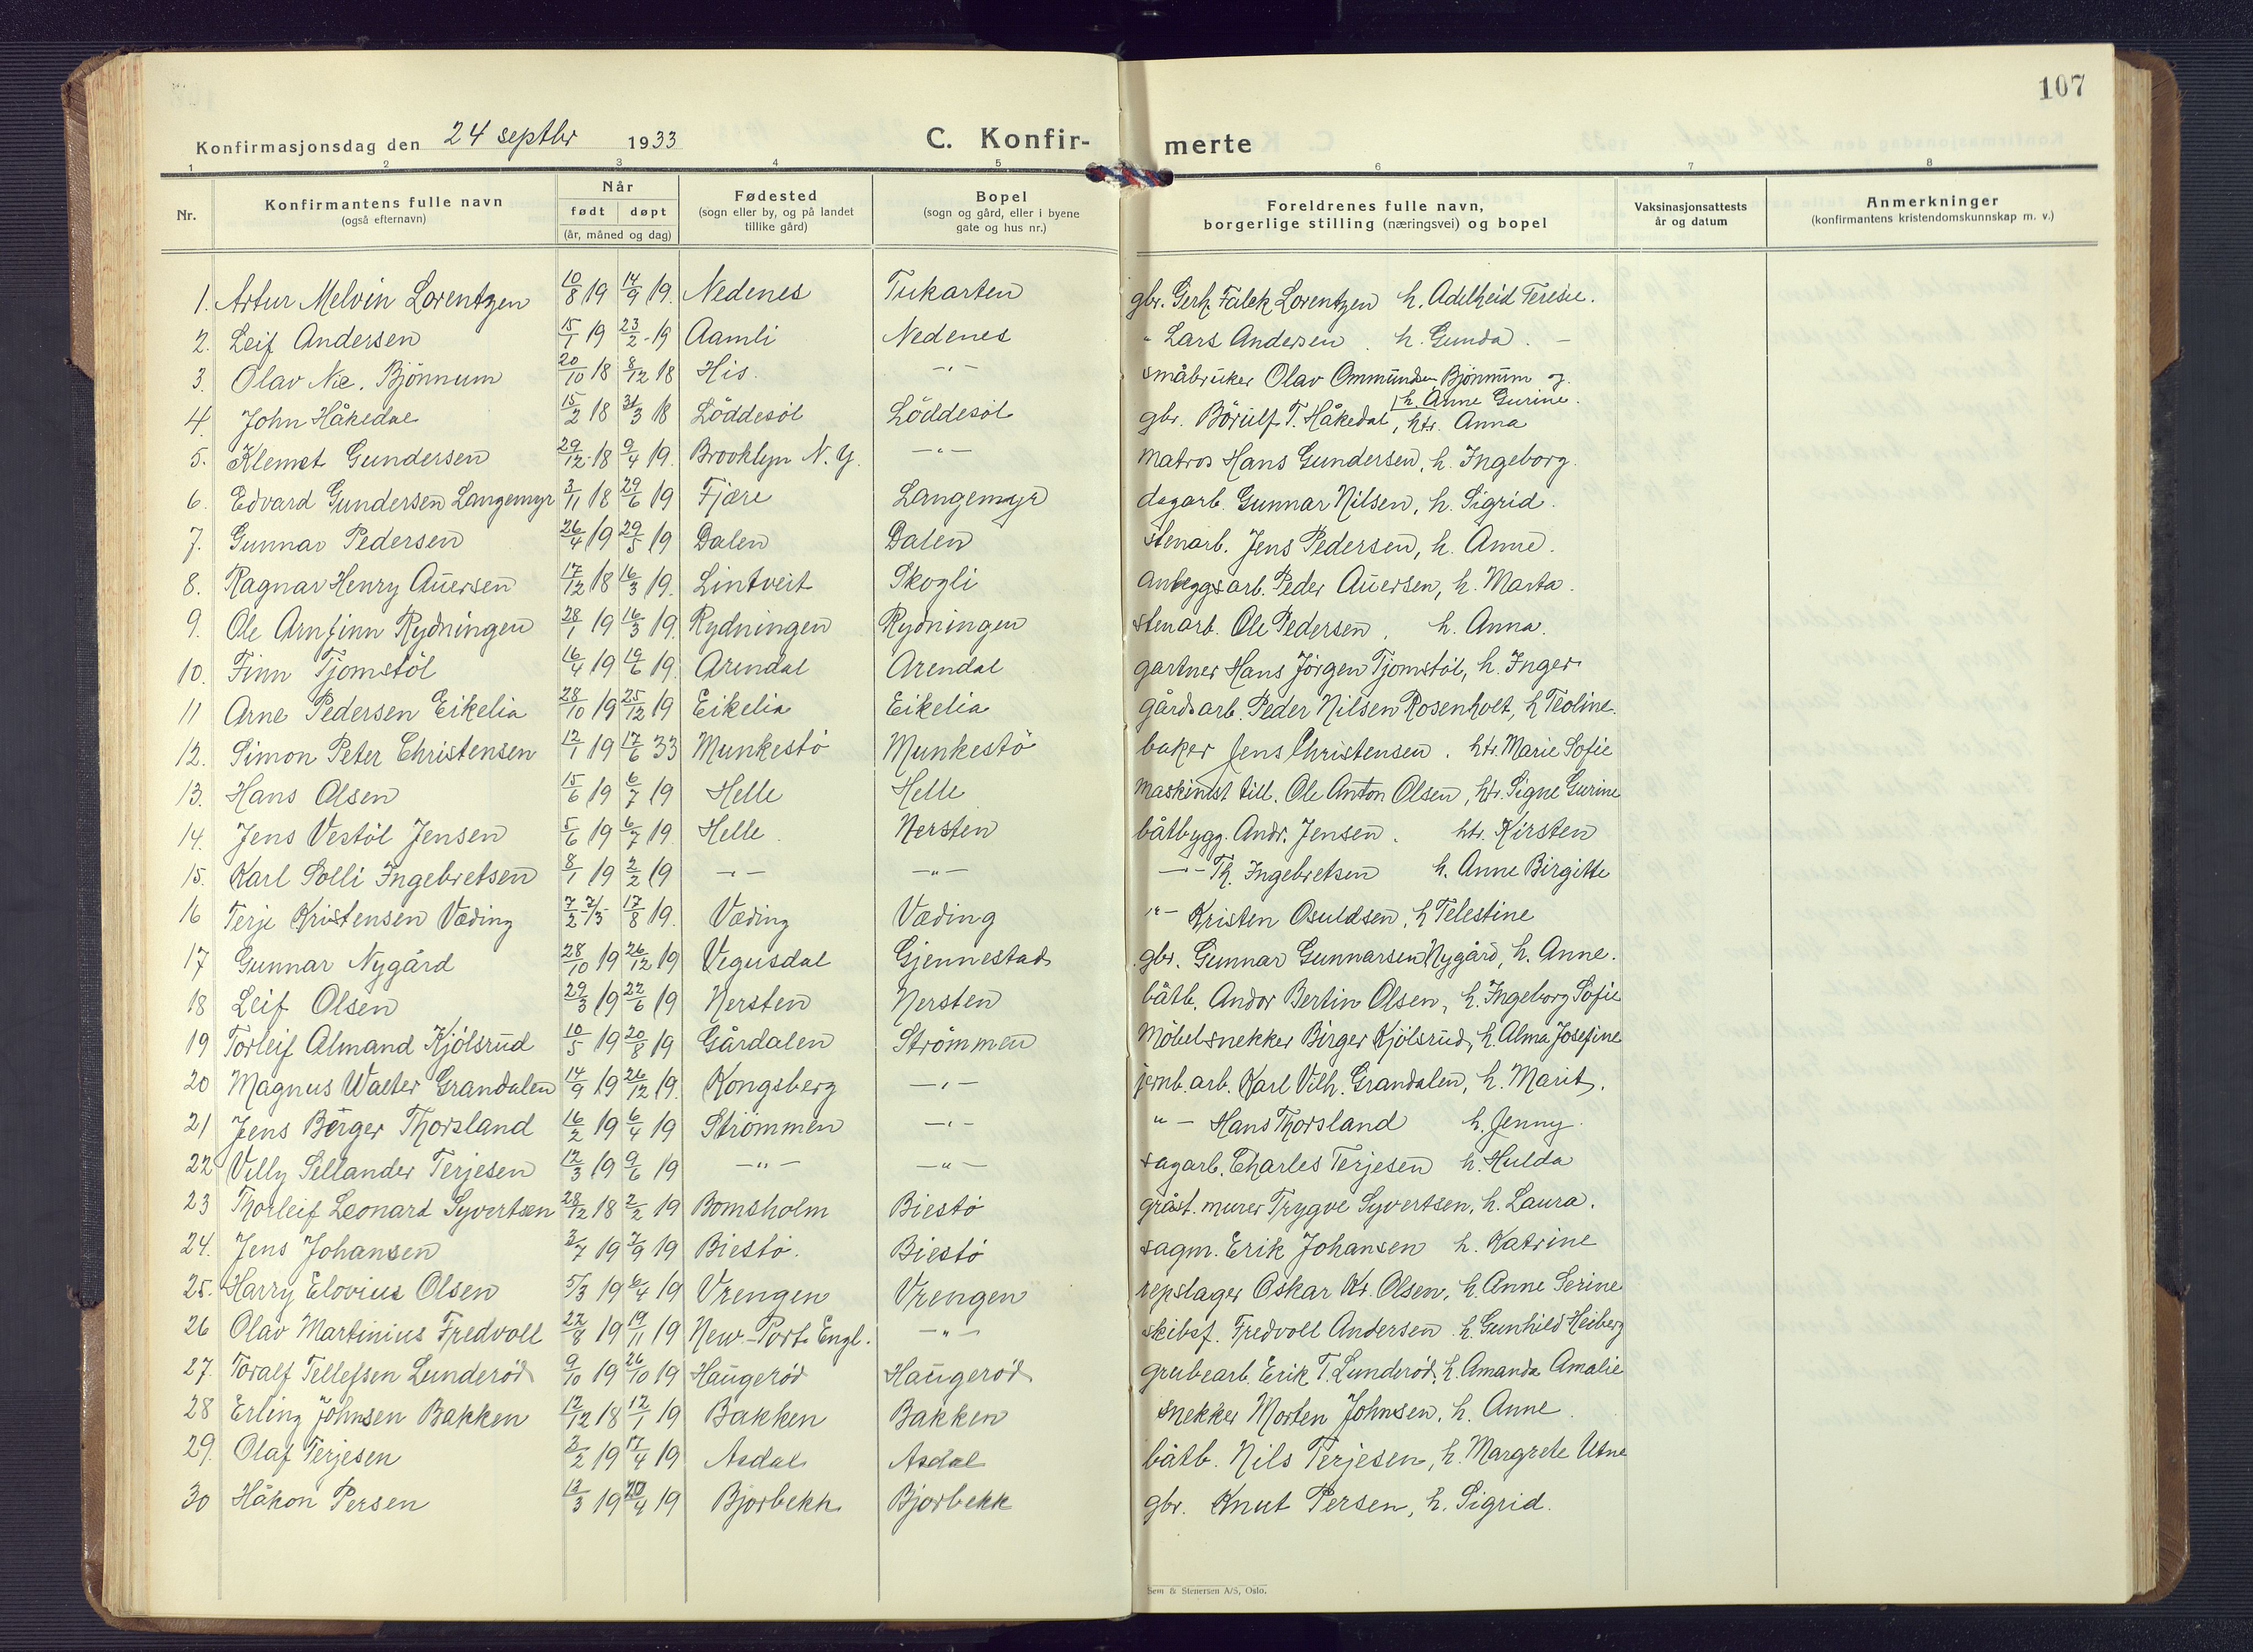 107
Konfirmasjonsdag den 24 septbr 1933 C. Konfir- merte
1 2 3 4 5 6 7 8
Nr. Konfirmantens fulle navn (også efternavn) Når født døpt (år, måned og dag) Fødested (sogn eller by, og på landet tillike gård) Bopel (sogn og gård, eller i byene gate og hus nr.) Foreldrenes fulle navn, borgerlige stilling (næringsvei) og bopel Vaksinasjonsattests år og datum Anmerkninger (konfirmantens kristendomskunnskap m. v.)
1. Artur Melvin Lorentzen 10/8 19 14/9 19. Nedenes Tukarten gbr. Gerh. Falck Lorentzen h. Adelheid Teresie.
2. Leif Andersen 15/1 19 23/2 - 19 Aamli Nedenes " Lars Andersen. h. Gunda. -
3. Olav Nic. Bjönnum 20/10 18 8/12 18 His. -"- småbruker Olav Ommundsen Bjönnum og
h. Anne Gurine.
4. John Håkedal 15/2 18 31/3 18 Löddesöl Löddesöl gbr. Börulf T. Håkedal, htr. Anna
5. Klemet Gundersen 29/12 - 18 9/4 19. Brooklyn N.Y. -"- matros Hans Gundersen, h. Ingeborg.
6. Edvard Gundersen Langemyr 3/11 18 29/6 19 Fjære Langemyr dagarb. Gunnar Nilsen, h. Sigrid.
7. Gunnar Pedersen 26/4 19 29/5 19 Dalen Dalen stenarb. Jens Pedersen, h. Anne.
8. Ragnar Henry Auersen 17/12 18 16/3 19. Lintveit Skogli anleggsarb. Peder Auersen, h. Marta.
9. Ole Arnfinn Rydningen 28/1 19 16/3 19. Rydningen Rydningen stenarb. Ole Pedersen, h. Anna.
10. Finn Tjomstöl 16/4 19 19/6 19. Arendal Arendal gartner Hans Jörgen Tjomstöl, h. Inger
11 Arne Pedersen Eikelia 28/10 19 25/12 19 Eikelia Eikelia gårdsarb. Peder Nilsen Rosenholt, h Teoline.
12. Simon Peter Christensen 12/1 19 17/6 33 Munkestö Munkestö baker Jens Christensen. htr. Marie Sofie
13. Hans Olsen 15/6 19 6/7 19 Helle Helle maskinist till. Ole Anton Olsen, htr. Signe Gurine
14. Jens Vestöl Jensen 5/6 19 6/7 19. Helle. Nersten båtbygg. Andr. Jensen. htr. Kirsten
15. Karl Solli Ingebretsen 8/1 19 2/2 19 -"- -"- -"- Th. Ingebretsen h. Anne Birgitte
16 Terje Kristensen Væding 17/8 19. Væding Væding "- Kristen Osuldsen, h Telestine
17 Gunnar Nygård 28/10 19 26/12 19 Vegusdal Gjennestad gbr. Gunnar Gunnarsen Nygård, h. Anne.
18 Leif Olsen 29/3 19 22/6 19 Nersten Nersten båtb. Andor Bertin Olsen, h. Ingeborg Sofie
19 Torleif Almand Kjölsrud 10/5 19 20/8 19 Gårdalen Strömmen Möbelsnekker Birger Kjölsrud, h. Alma Josefine
20 Magnus Walter Grandalen 14/9 19 26/12 19. Kongsberg -"- jernb. arb. Karl Vilh. Grandalen, h. Marit.
21 Jens Börger Thorsland 16/2 19 6/4 19 Strömmen -"- " - Hans Thorsland h. Jenny.
22 Villy Sellander Terjesen 12/3 19 9/6 19 -"- -"- sagarb. Charles Terjesen h. Hulda
23 Thorleif Leonard Syvertsen 28/12 18 2/2 19 Bomsholm Biestö gråst. murer Trygve Syvertsen, h. Laura.
24. Jens Johansen 3/7 19 7/9 19 Biestö. Biestö sagm. Erik Johansen h. Katrine
25. Harry Elovius Olsen 5/3 19 6/4 19 Vrengen Vrengen repslager Oskar Kr. Olsen, h. Anne Serine
26 Olav Martinius Fredvoll 22/8 19 19/11 19 New-Port Engl. -"- skibsf. Fredvoll Andersen h. Gunhild Heiberg
27. Toralf Tellefsen Lunderöd 9/10 19 26/10 19 Haugeröd Haugeröd grubearb. Erik T. Lunderöd, h. Amanda Amalie
28 Erling Johnsen Bakken 12/12 18 12/1 19 Bakken Bakken snekker Morten Johnsen, h. Anne.
29. Olaf Terjesen 2/2 19 17/4 19 Asdal Asdal båtb. Nils Terjesen, h. Margrete Utne
30 Håkon Persen 13/3 19 20/4 19 Bjorbekk Bjorbekk gbr. Knut Persen, h. Sigrid.
Sem & Stenersen A/S, Oslo.